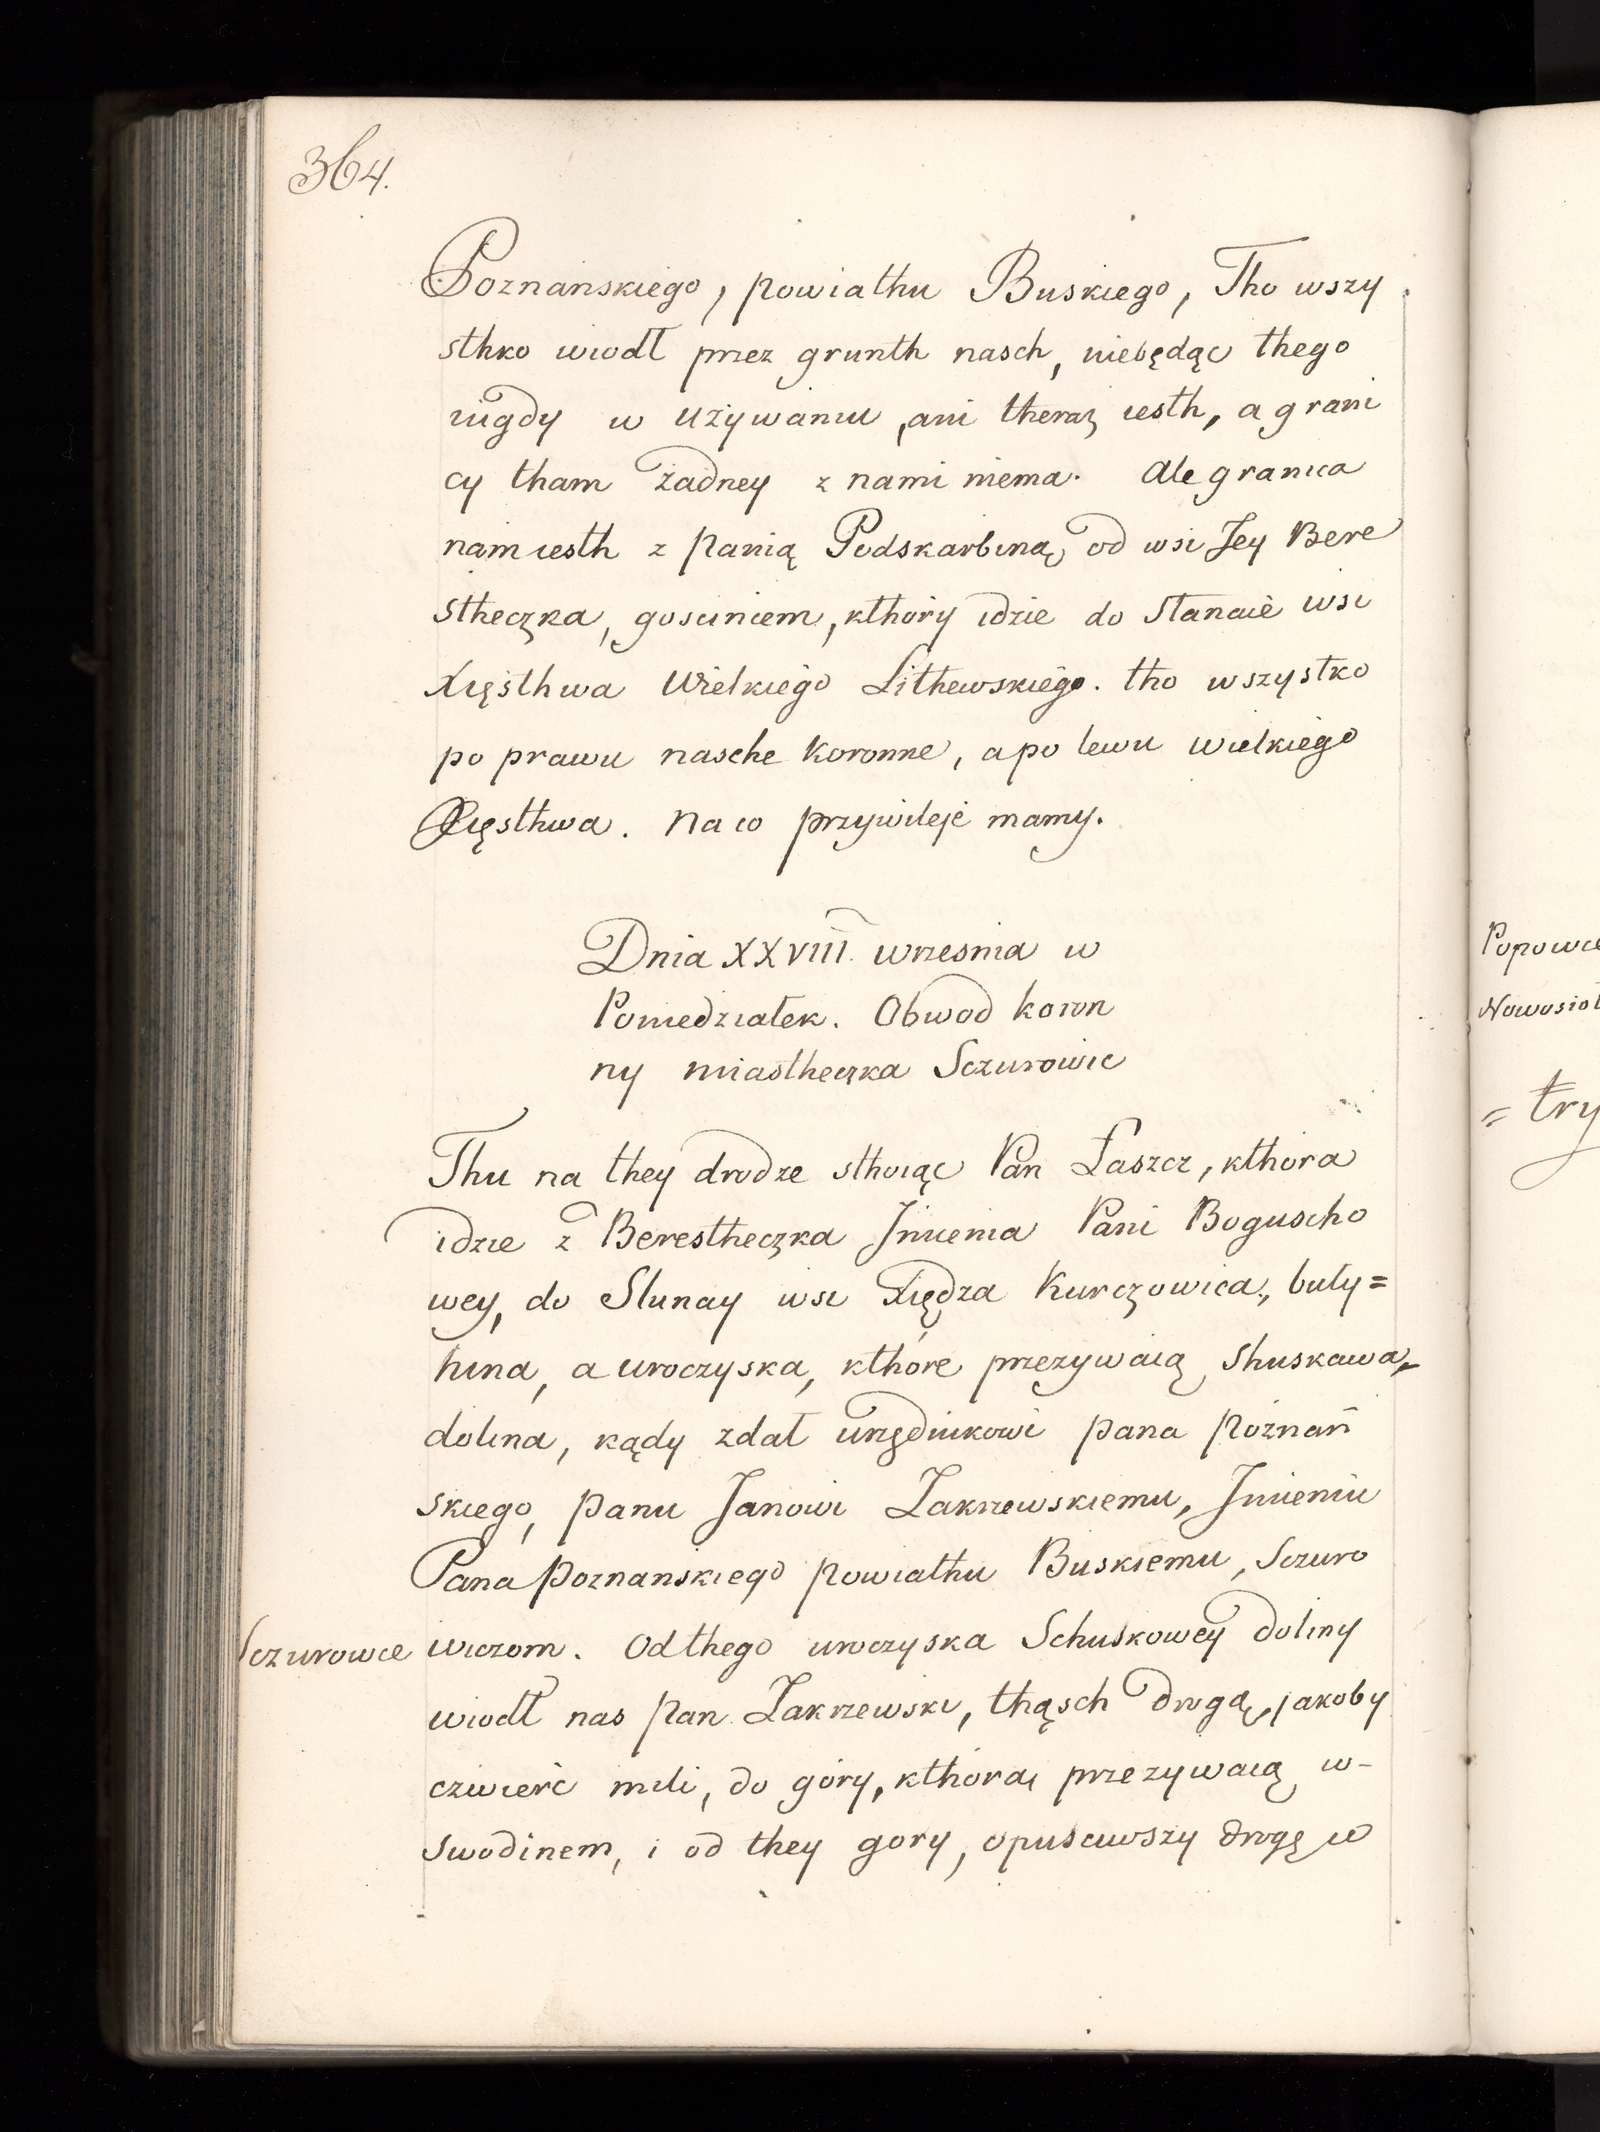 364.
Poznanskiego, powiathu Buskiego, Tho wszy
sthko wiodł przez grunth nasch, niebędąc thego
nigdy w używaniu, ani theraz iesth, a grani
cy tham żadney z nami niema. Ale granica
nam iesth z panią Podskarbiną, od wsi Jey Bere
stheczka, goscincem, kthóry idzie do Stancie wsi
Xięsthwa Wielkiego Lithewskiego. tho wszystko
po prawu nasche koronne, a po lewu wielkiego
Xięsthwa. Na co przywileje mamy.
Dnia XXVIII wrzesnia w
Poniedziałek. Obwod koron
ny miastheczka Sczurowic
Thu na they drodze sthoiąc Pan Łaszcz, kthora
idzie z Berestheczka Jmienia Pani Boguscho
wey, do Slunay wsi Xiędza Kurczowica, buty=
hina, a uroczyska, kthóre przezywaią Shuskawa,
dolina, kądy zdał urzędnikowi pana poznań
skiego, panu Janowi Zakrzewskiemu, Jmieniu
Pana poznanskiego powiathu Buskiemu, Sczuro
Sczurowce wiczom. Od thego uroczyska Schuskowey doliny
wiodł nas pan Zakrzewski, thąsch drogą, jakoby
czwierć mili, do góry, kthórą przezywaią w-
Swodinem, i od they gory, opusciwszy drogę w
Popowce
Nowosioł
= try